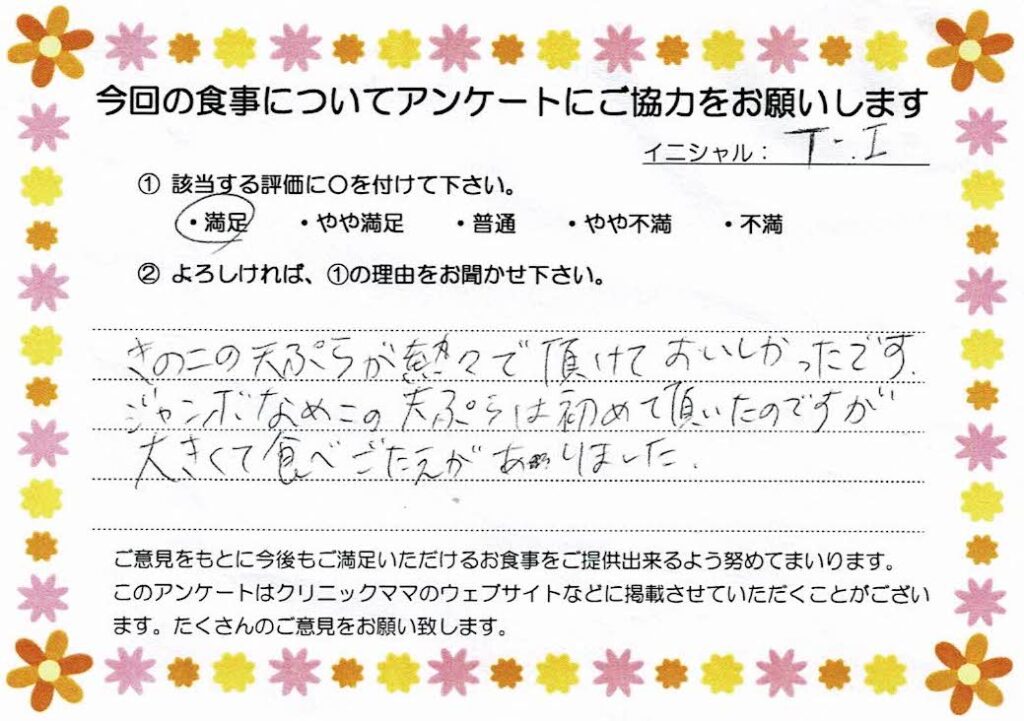 今回の食事についてアンケートにご協力をお願いします
イニシャル： T.I
① 該当する評価に〇を付けて下さい。
・満足 ・やや満足 ・普通 ・やや不満 ・不満
② よろしければ、①の理由をお聞かせ下さい。
きのこの天ぷらが熱々で頂けておいしかったです.
ジャンボなめこの天ぷらは初めて頂いたのですが
大きくて食べごたえがありました.
ご意見をもとに今後もご満足いただけるお食事をご提供出来るよう努めてまいります。
このアンケートはクリニックママのウェブサイトなどに掲載させていただくことがござい
ます。たくさんのご意見をお願い致します。